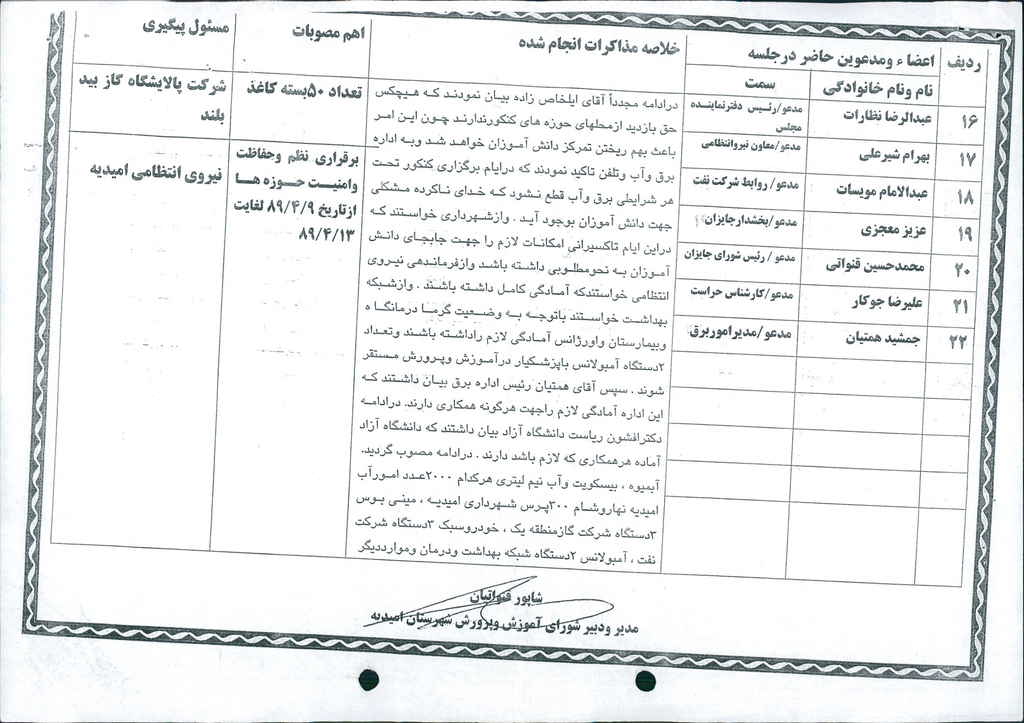 ردیف
اعضاء ومدعوین حاضر درجلسه
نام ونام خانوادگی
سمت
خلاصه مذاکرات انجام شده
اهم مصوبات
مسئول پیگیری
۱۶ عبدالرضا نظارات مدعو/رئیس دفترنماینده مجلس
۱۷ بهرام شیرعلی مدعو/معاون نیروانتظامی
۱۸ عبدالامام مویسات مدعو/ روابط شرکت نفت
۱۹ عزیز معجزی مدعو/بخشدارجایزان
۲۰ محمدحسین قنواتی مدعو / رئیس شورای جایزان
۲۱ علیرضا جوکار مدعو/کارشناس حراست
۲۲ جمشید همتیان مدعو/مدیرامور برق
درادامه مجدداً آقای ایلخاص زاده بیان نمودند که هیچکس
حق بازدید ازمحلهای حوزه های کنکورندارند چون این امر
باعث بهم ریختن تمرکز دانش آموزان خواهد شد وبه اداره
برق وآب وتلفن تاکید نمودند که درایام برگزاری کنکور تحت
هر شرایطی برق وآب قطع نشود که خدای ناکرده مشکلی
جهت دانش آموزان بوجود آید . وازشهرداری خواستند که
دراین ایام تاکسیرانی امکانات لازم را جهت جابجای دانش
آموزان به نحومطلوبی داشته باشد وازفرماندهی نیروی
انتظامی خواستندکه آمادگی کامل داشته باشند . وازشبکه
بهداشت خواستند باتوجه به وضعیت گرما درمانگاه
وبیمارستان واورژانس آمادگی لازم راداشته باشند وتعداد
۲دستگاه آمبولانس باپزشکیار درآموزش وپرورش مستقر
شوند . سپس آقای همتیان رئیس اداره برق بیان داشتند که
این اداره آمادگی لازم راجهت هرگونه همکاری دارند. درادامه
دکترافشون ریاست دانشگاه آزاد بیان داشتند که دانشگاه آزاد
آماده هرهمکاری که لازم باشد دارند . درادامه مصوب گردید.
آبمیوه ، بیسکویت وآب نیم لیتری هرکدام ۲۰۰۰عدد امورآب
امیدیه نهاروشام ۳۰۰پرس شهرداری امیدیه ، مینی بوس
۳دستگاه شرکت گازمنطقه یک ، خودروسبک ۳دستگاه شرکت
نفت ، آمبولانس ۲دستگاه شبکه بهداشت ودرمان ومواردديگر
تعداد ۵۰بسته کاغذ
شرکت پالایشگاه گاز بید
بلند
برقراری نظم وحفاظت
وامنیت حوزه ها
ازتاریخ ۸۹/۴/۹ لغایت
۸۹/۴/۱۳
نیروی انتظامی امیدیه
شاپور قنواتیان
مدیر ودبیر شورای آموزش وپرورش شهرستان امیدیه